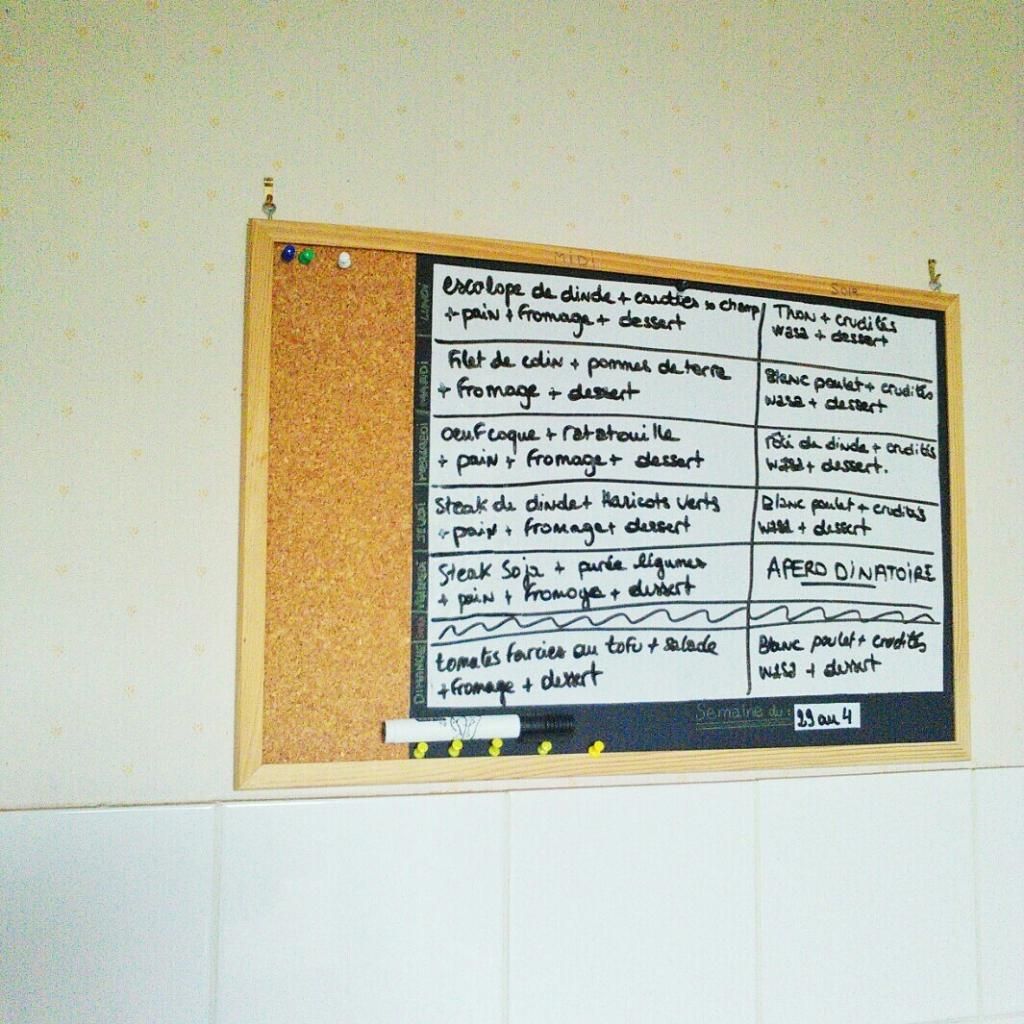 MIDI SOIR
LUNDI
escalope de dinde + carottes champ
+ pain + fromage + dessert
Thon + crudités
wasa + dessert
MARDI
Filet de colin + pommes de terre
+ fromage + dessert
Blanc poulet + crudités
wasa + dessert
MERCREDI
oeuf coque + ratatouille
+ pain + fromage + dessert
rôti de dinde + crudités
wasa + dessert.
JEUDI
Steak de dinde + haricots verts
+ pain + fromage + dessert
Blanc poulet + crudités
wasa + dessert
VENDREDI
Steak Soja + purée légumes
+ pain + fromage + dessert
APERO DINATOIRE
DIMANCHE
tomates farcies au tofu + salade
+ fromage + dessert
Blanc poulet + crudités
wasa + dessert
Semaine du: 29 au 4